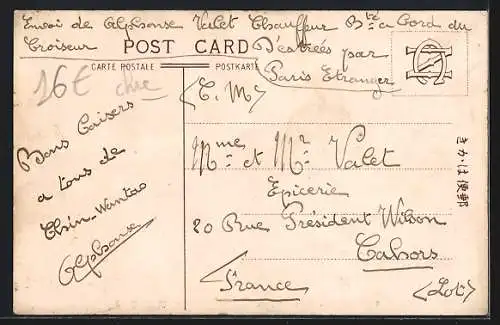 Envoi de Alphonse Valet Chauffeur Bté a bord du
Croiseur
POST CARD
D'estrées par
Paris Etranger
CARTE POSTALE
POSTKARTE
16€
chic
(T. M)
Bons Baisers
a tous de
Chin-Wantao
Alphonse
Mme et Mr Valet
Epicerie
20 Rue Président Wilson
Cahors
France
(Lot)
きかは便郵